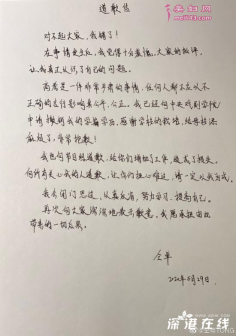 道歉信
对不起大家,我错了!
在事情发生后,我觉得十分羞愧,大家的批评,
让我真正认识了自己的问题。
高考是一件非常严肃的事情,任何人都不应以不
正确的言行影响其公平、公正。我已经向中央戏剧学院
申请撤销我的学籍学历,感谢学校的栽培,给母校添
麻烦了,非常抱歉!
我也向节目组道歉,给你们增加了工作,造成了损失。
向所有关心我的人道歉,让你们担心难过,请一定以我为戒。
我会闭门思过,从善反省,努力学习,提高自己。
再次向大家深深地表示歉意,我愿承担由此
带来的一切后果。
仝卓
2020年5月29日
深港在线